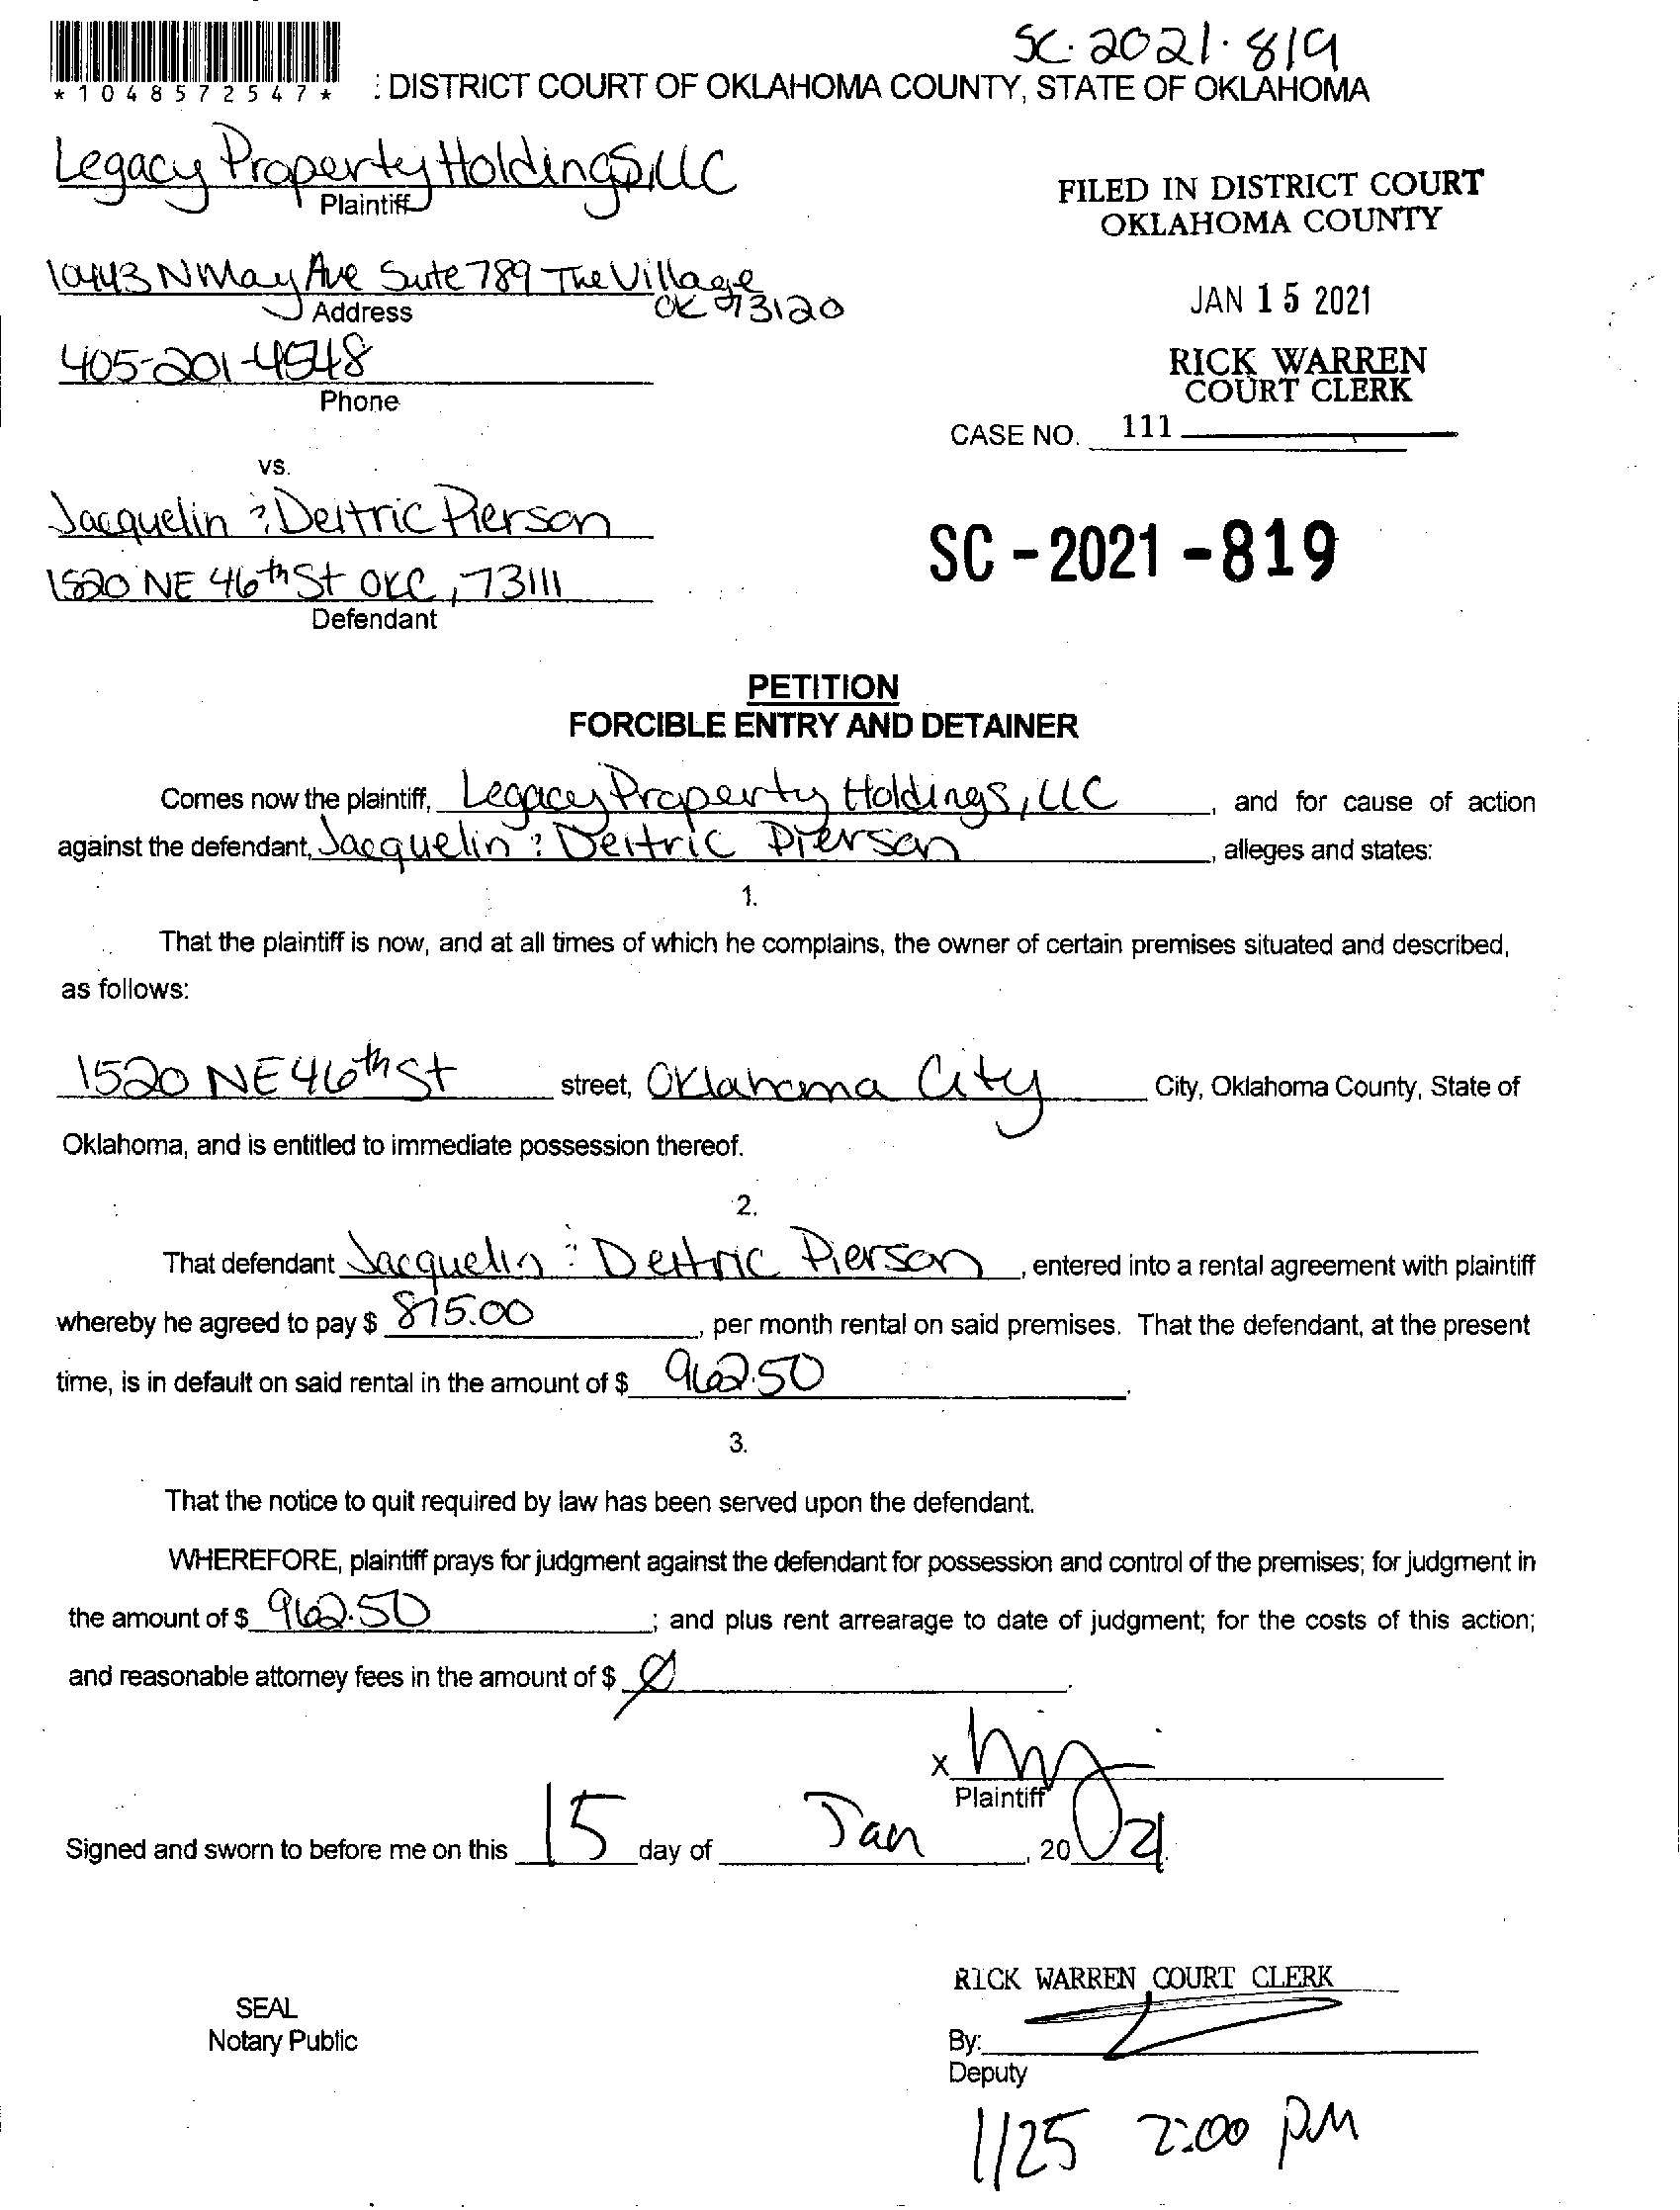 SC-2021-819
*1048572547*
: DISTRICT COURT OF OKLAHOMA COUNTY, STATE OF OKLAHOMA
Legacy Property Holdings, LLC
Plaintiff
FILED IN DISTRICT COURT
OKLAHOMA COUNTY
10443 N May Ave Suite 789 The Village
OK 73120
Address
JAN 15 2021
405-201-4548
Phone
RICK WARREN
COURT CLERK
CASE NO. 111
vs.
Jacquelin & Deitric Pierson
1520 NE 46th St OKC, 73111
Defendant
SC-2021-819
PETITION
FORCIBLE ENTRY AND DETAINER
Comes now the plaintiff, Legacy Property Holdings, LLC, and for cause of action
against the defendant, Jacquelin & Deitric Pierson, alleges and states:
1.
That the plaintiff is now, and at all times of which he complains, the owner of certain premises situated and described,
as follows:
1520 NE 46th St street, Oklahoma City City, Oklahoma County, State of
Oklahoma, and is entitled to immediate possession thereof.
2.
That defendant Jacquelin & Deitric Pierson, entered into a rental agreement with plaintiff
whereby he agreed to pay $ 875.00, per month rental on said premises. That the defendant, at the present
time, is in default on said rental in the amount of $ 962.50.
3.
That the notice to quit required by law has been served upon the defendant.
WHEREFORE, plaintiff prays for judgment against the defendant for possession and control of the premises; for judgment in
the amount of $ 962.50; and plus rent arrearage to date of judgment; for the costs of this action;
and reasonable attorney fees in the amount of $ Ø.
X
Plaintiff
Signed and sworn to before me on this 15 day of Jan, 20 21.
RICK WARREN COURT CLERK
SEAL
Notary Public
By:
Deputy
1/25 2:00 PM